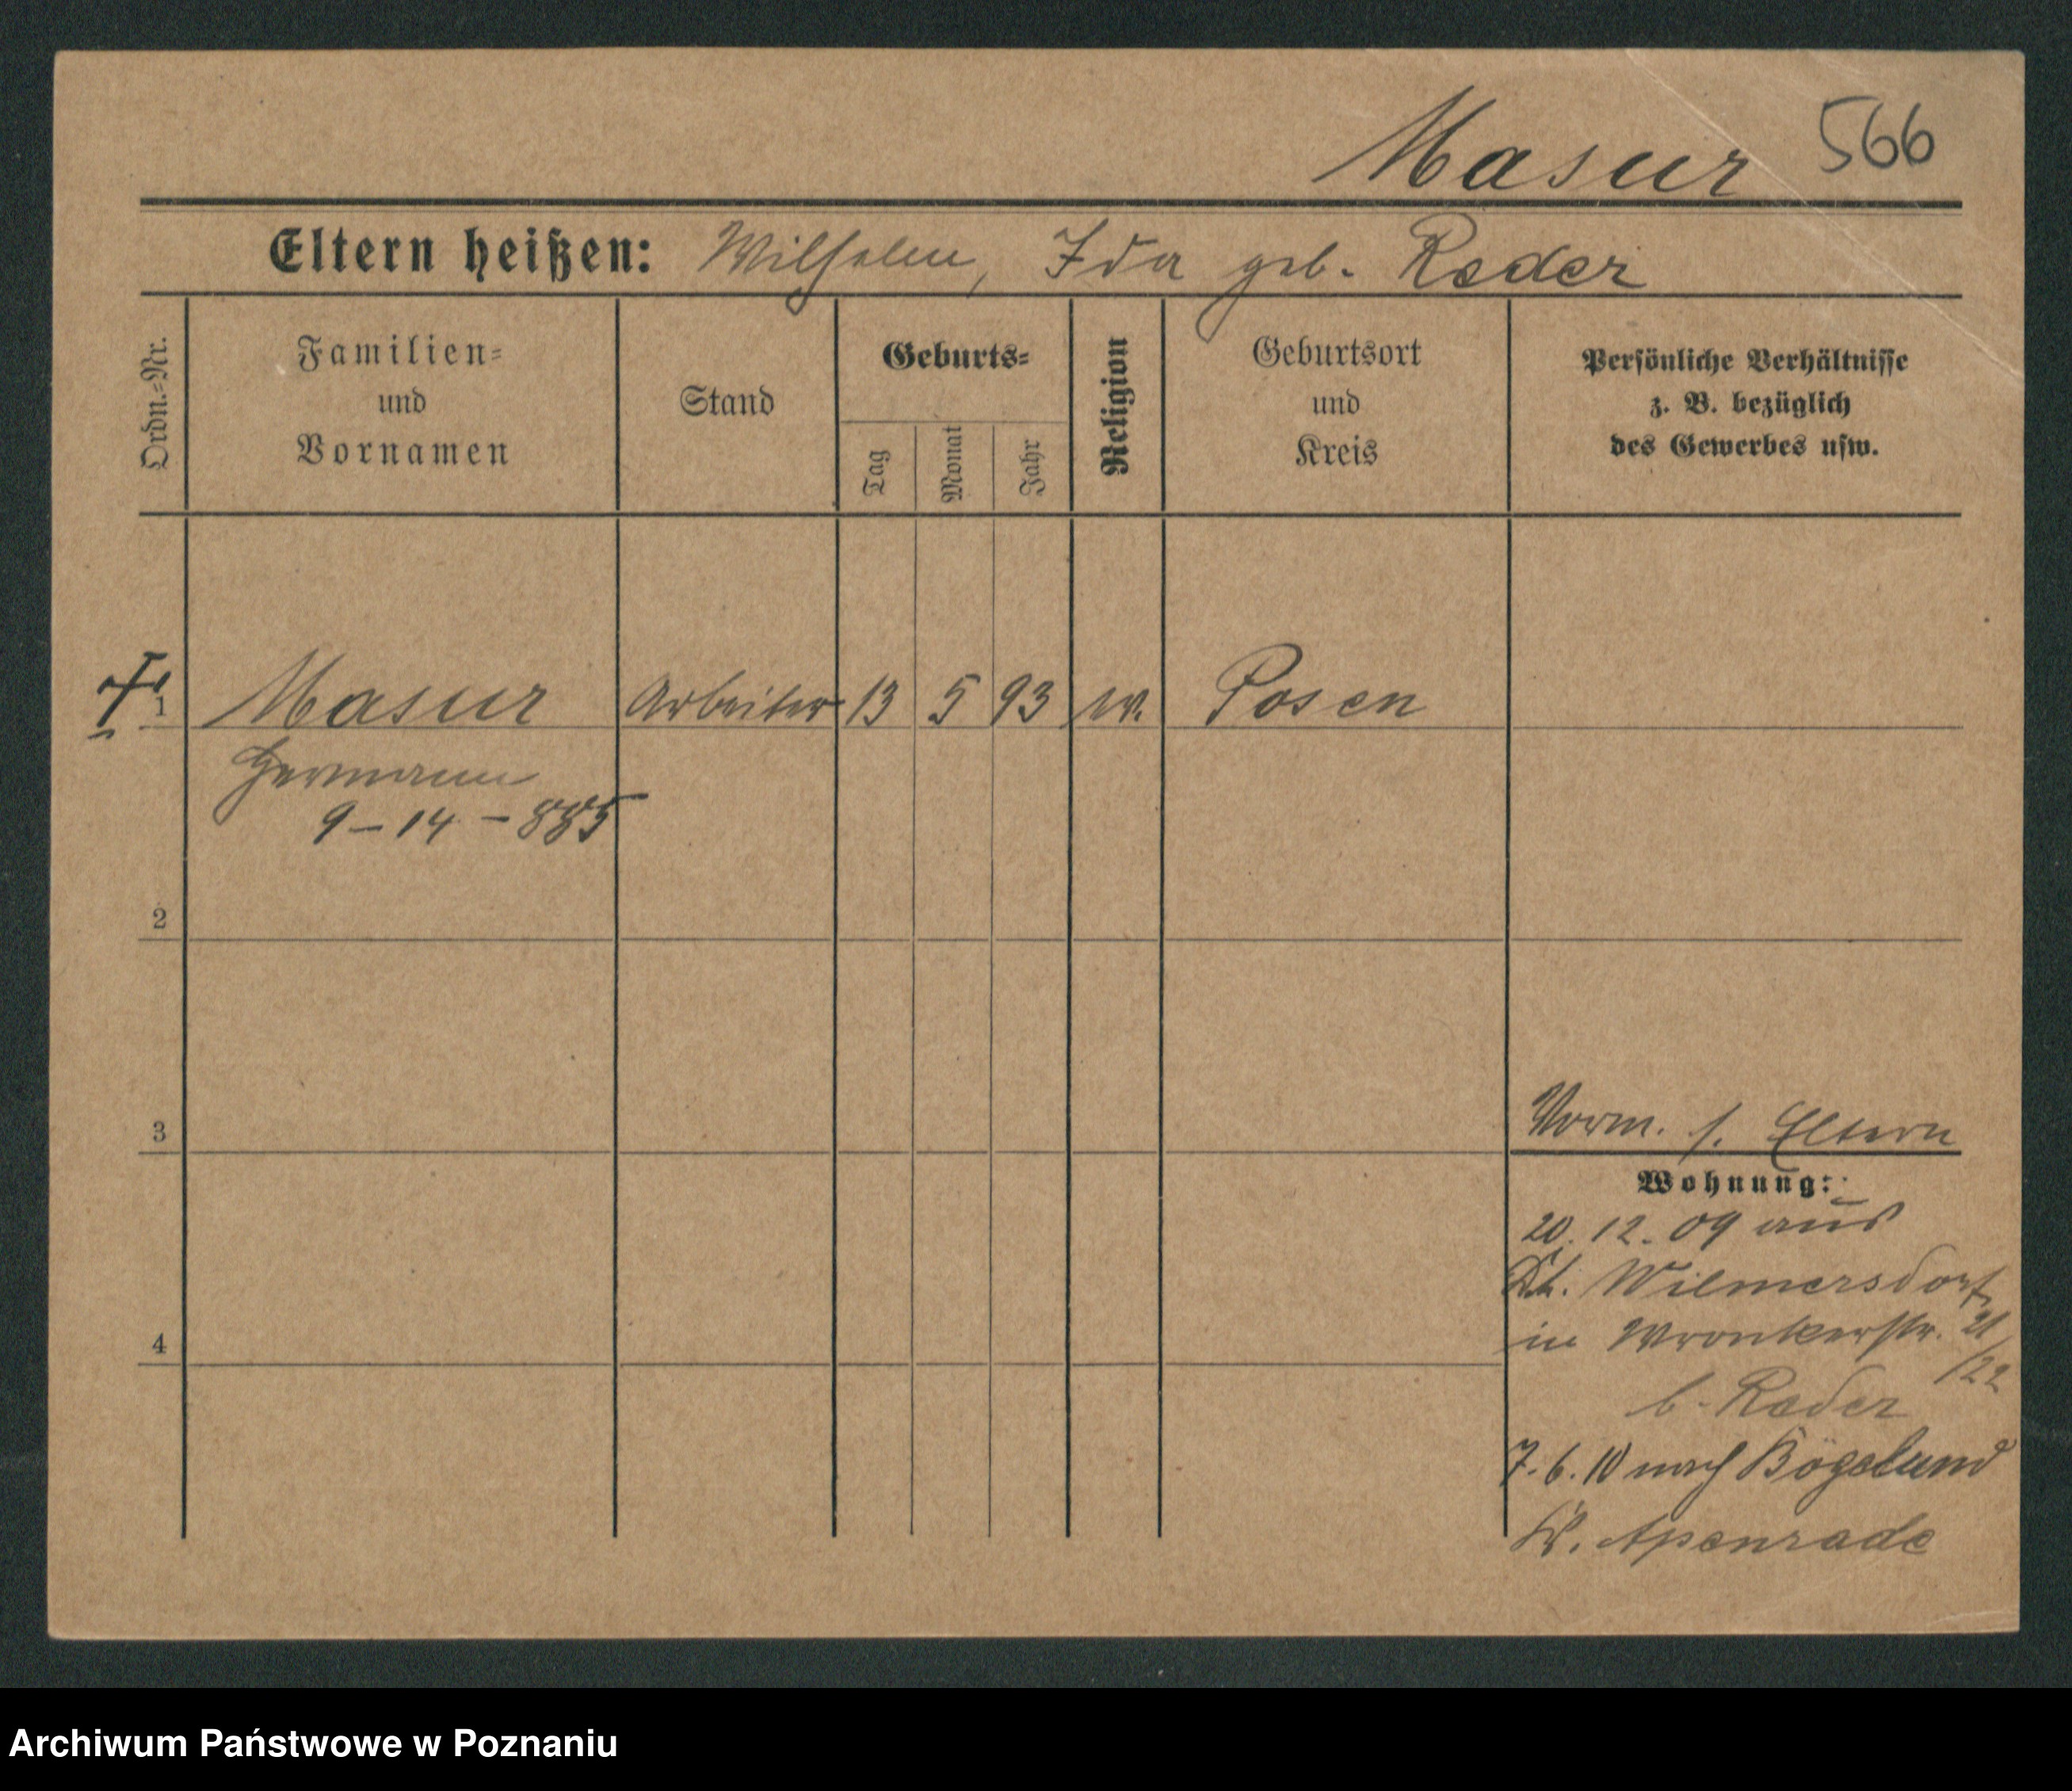 Masur 566
Eltern heißen: Wilhelm, Ida geb. Reder
Ordn.-Nr.
Familien-
und
Vornamen
Stand
Geburts-
Tag
Monat
Jahr
Religion
Geburtsort
und
Kreis
Persönliche Verhältnisse
z. B. bezüglich
des Gewerbes usw.
1 Masur Arbeiter 13 5 93 Posen
Hermann
9-14-885
2
3
Vorm. s. Eltern
Wohnung:
4
20. 12. 09 aus
Dt. Wilmersdorf
in Wronkerstr. 21
/22
b. Reder
7. 6. 10 nach Bögelund
Kr. Apenrade
Archiwum Państwowe w Poznaniu